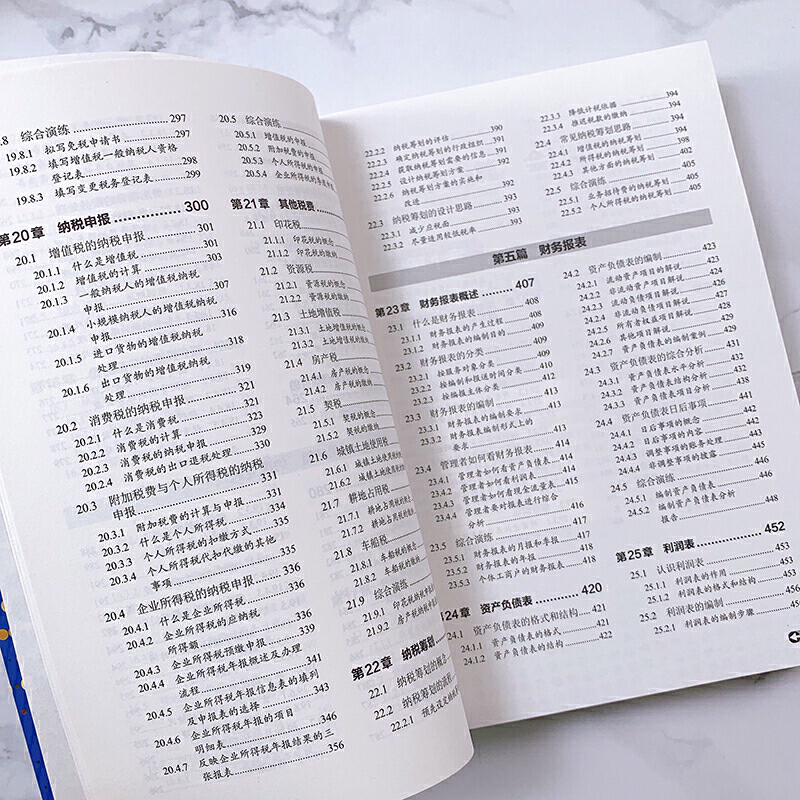 .8 综合演练 297
19.8.1 拟写免税申请书 297
19.8.2 填写增值税一般纳税人资格
登记表 298
19.8.3 填写变更税务登记表 299
第20章 纳税申报 300
20.1 增值税的纳税申报 301
20.1.1 什么是增值税 301
20.1.2 增值税的计算 303
20.1.3 一般纳税人的增值税纳税
申报 307
20.1.4 小规模纳税人的增值税纳税
申报 316
20.1.5 进口货物的增值税纳税
处理 318
20.1.6 出口货物的增值税纳税
处理 319
20.2 消费税的纳税申报 321
20.2.1 什么是消费税 321
20.2.2 消费税的计算 323
20.2.3 消费税的纳税申报 329
20.2.4 消费税的出口退税处理 330
20.3 附加税费与个人所得税的纳税
申报 331
20.3.1 附加税费的计算与申报 331
20.3.2 什么是个人所得税 334
20.3.3 个人所得税的扣缴方式
20.3.4 个人所得税代扣代缴的其他
事项 335
20.4 企业所得税的纳税申报 336
20.4.1 什么是企业所得税 336
20.4.2 企业所得税的应纳税
所得额 336
20.4.3 企业所得税预缴申报 339
20.4.4 企业所得税年报概述及办理
流程 341
20.4.5 企业所得税年报信息表的填列
及申报表的选择 343
20.4.6 企业所得税年报的项目
明细表 346
20.4.7 反映企业所得税年报结果的三
张报表 356
20.5 综合演练
20.5.1 增值税的申报
20.5.2 附加税费的申报
20.5.3 个人所得税的申
20.5.4 企业所得税的季度申
第21章 其他税费
21.1 印花税
21.1.1 印花税的概念
21.1.2 印花税的缴纳
21.2 资源税
21.2.1 资源税的概念
21.2.2 资源税的缴纳
21.3 土地增值税
21.3.1 土地增值税的概念
21.3.2 土地增值税的缴纳
21.4 房产税
21.4.1 房产税的概念
21.4.2 房产税的缴纳
21.5 契税
21.5.1 契税的概念
21.5.2 契税的缴纳
21.6 城镇土地使用税
21.6.1 城镇土地使用税
21.6.2 城镇土地使用税
21.7 耕地占用税
21.7.1 耕地占用税的
21.7.2 耕地占用税
21.8 车船税
21.8.1 车船税的概念
21.8.2 车船税的缴纳
21.9 综合演练
21.9.1 印花税纳税申
21.9.2 房产税纳税申
第22章 纳税筹划
22.1 纳税筹划的概念
22.2 纳税筹划的流程
22.2.1 预先设定纳税
22.2.2 纳税筹划的评估 390
22.2.3 确定纳税筹划的行政组织 391
22.2.4 获取纳税筹划需要的信息 391
22.2.5 设计纳税筹划方案 392
22.2.6 纳税筹划方案的实施和
改进 392
22.3 纳税筹划的设计思路 393
22.3.1 减少应税面 393
22.3.2 尽量适用较低税率 393
22.3.3 降低计税依据 394
22.3.4 推迟税款的缴纳 394
22.4 常见纳税筹划思路 394
22.4.1 增值税的纳税筹划 394
22.4.2 所得税的纳税筹划 398
22.4.3 其他方面的纳税筹划 401
22.5 综合演练 405
22.5.1 业务招待费的纳税筹划 405
22.5.2 个人所得税的纳税筹划 405
第五篇 财务报表
第23章 财务报表概述 407
23.1 什么是财务报表 408
23.1.1 财务报表的产生过程 408
23.1.2 财务报表的编制目的 409
23.2 财务报表的分类 409
23.2.1 按服务对象分类 409
23.2.2 按编制和报送时间分类 410
23.2.3 按编报主体分类 412
23.3 财务报表的编制 412
23.3.1 财务报表的编制要求 412
23.3.2 财务报表编制形式上的
要求 413
23.4 管理者如何看财务报表 414
23.4.1 管理者如何看资产负债表 414
23.4.2 管理者如何看利润表 414
23.4.3 管理者如何看现金流量表 415
23.4.4 管理者要对报表进行综合
分析 416
23.5 综合演练 417
23.5.1 财务报表的月报和季报 417
23.5.2 财务报表的年报 418
23.5.3 个体工商户的财务报表 418
第24章 资产负债表 420
24.1 资产负债表的格式和结构 421
24.1.1 资产负债表的格式 421
24.1.2 资产负债表的结构 422
24.2 资产负债表的编制 423
24.2.1 流动资产项目的解说 423
24.2.2 非流动资产项目的解说
24.2.3 流动负债项目解说
24.2.4 非流动负债项目解说
24.2.5 所有者权益项目解说
24.2.6 其他项目解说 429
24.2.7 资产负债表的编制案例 429
24.3 资产负债表的综合分析 431
24.3.1 资产负债表水平分析 432
24.3.2 资产负债表结构分析
24.3.3 资产负债表项目分析 438
24.4 资产负债表日后事项 441
24.4.1 日后事项的概念 441
24.4.2 日后事项的内容 442
24.4.3 调整事项的账务处理 442
24.4.4 非调整事项的披露
24.5 综合演练
24.5.1 编制资产负债表
24.5.2 编制资产负债表分析
报告 448
第25章 利润表 452
25.1 认识利润表 453
25.1.1 利润表的作用 453
25.1.2 利润表的格式和结构 453
25.2 利润表的编制
25.2.1 利润表的编制步骤